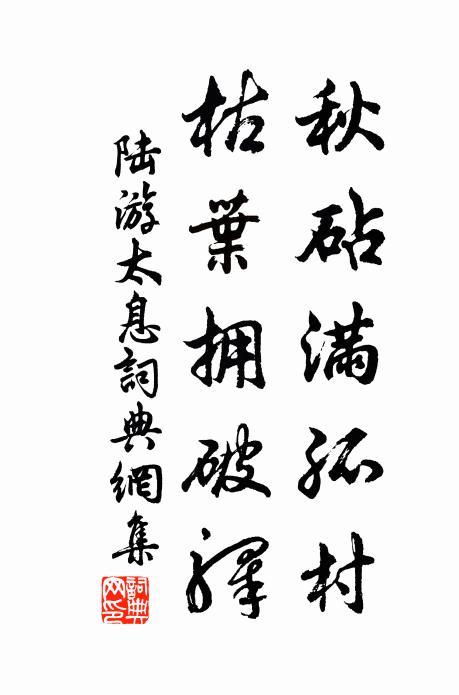 秋砧满孤村
枯葉拥破驿
陆游太息詞典網集
詞典网印